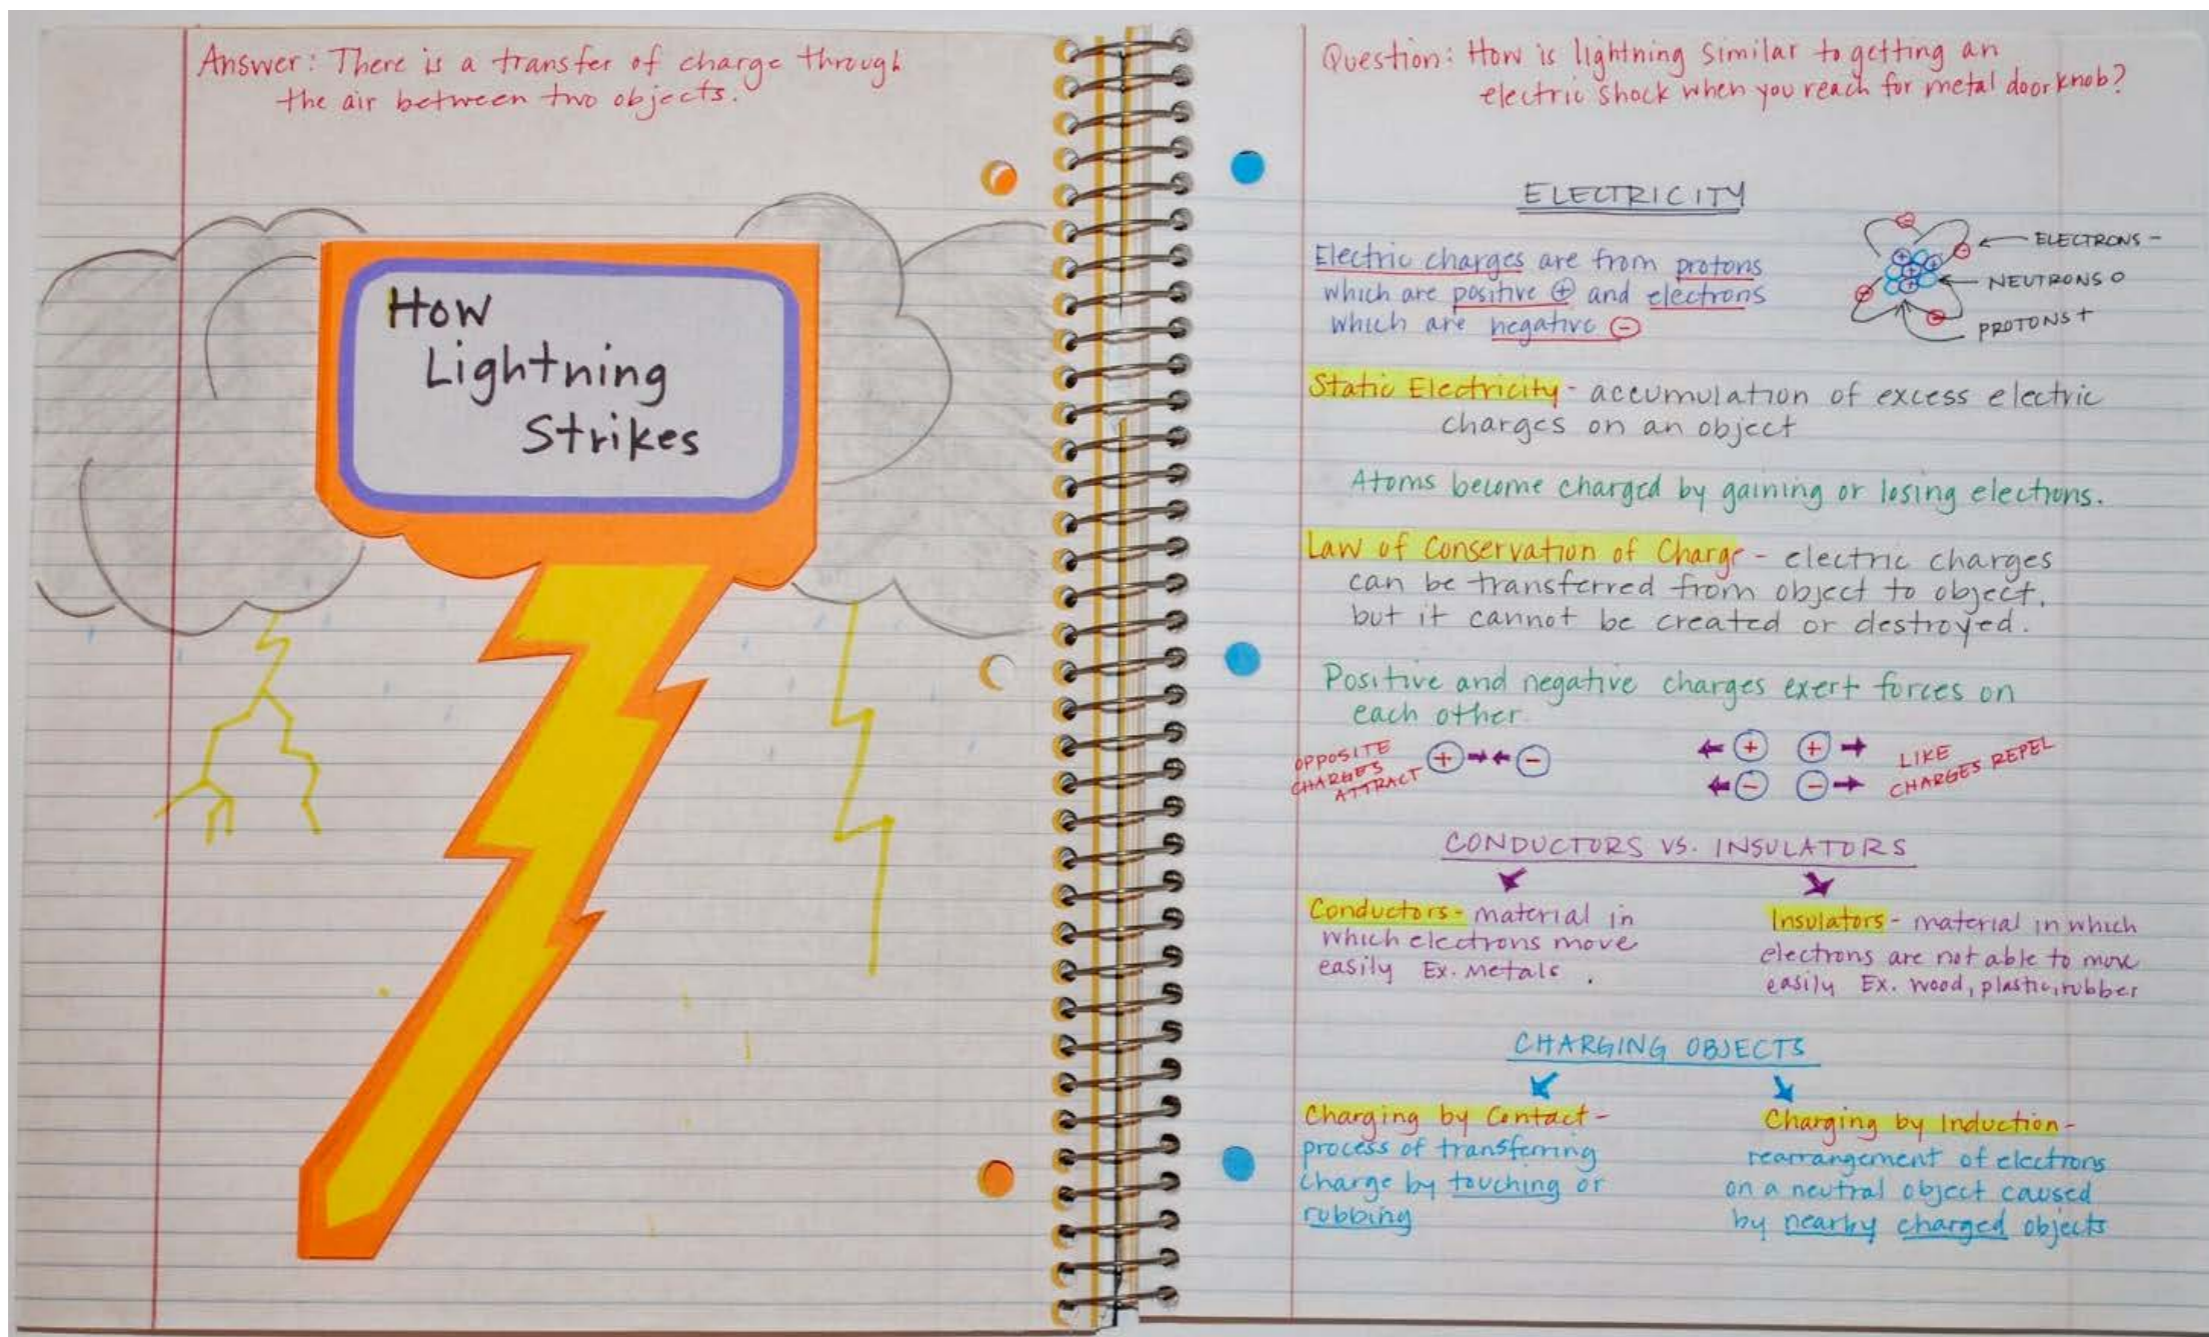 Answer: There is a transfer of charge through
the air between two objects.
How
Lightning
Strikes
Question: How is lightning similar to getting an
electric shock when you reach for metal doorknob?
ELECTRICITY
Electric charges are from protons
which are positive ⊕ and electrons
which are negative ⊖
ELECTRONS -
NEUTRONS O
PROTONS +
Static Electricity - accumulation of excess electric
charges on an object
Atoms become charged by gaining or losing electrons.
Law of Conservation of Charge - electric charges
can be transferred from object to object,
but it cannot be created or destroyed.
Positive and negative charges exert forces on
each other
OPPOSITE
CHARGES
ATTRACT
+ -
+ +
- -
LIKE
CHARGES REPEL
CONDUCTORS VS. INSULATORS
Conductors - material in
which electrons move
easily Ex. Metals.
Insulators - material in which
electrons are not able to move
easily Ex. wood, plastic, rubber
CHARGING OBJECTS
Charging by Contact -
process of transferring
charge by touching or
rubbing
Charging by Induction -
rearrangement of electrons
on a neutral object caused
by nearby charged objects